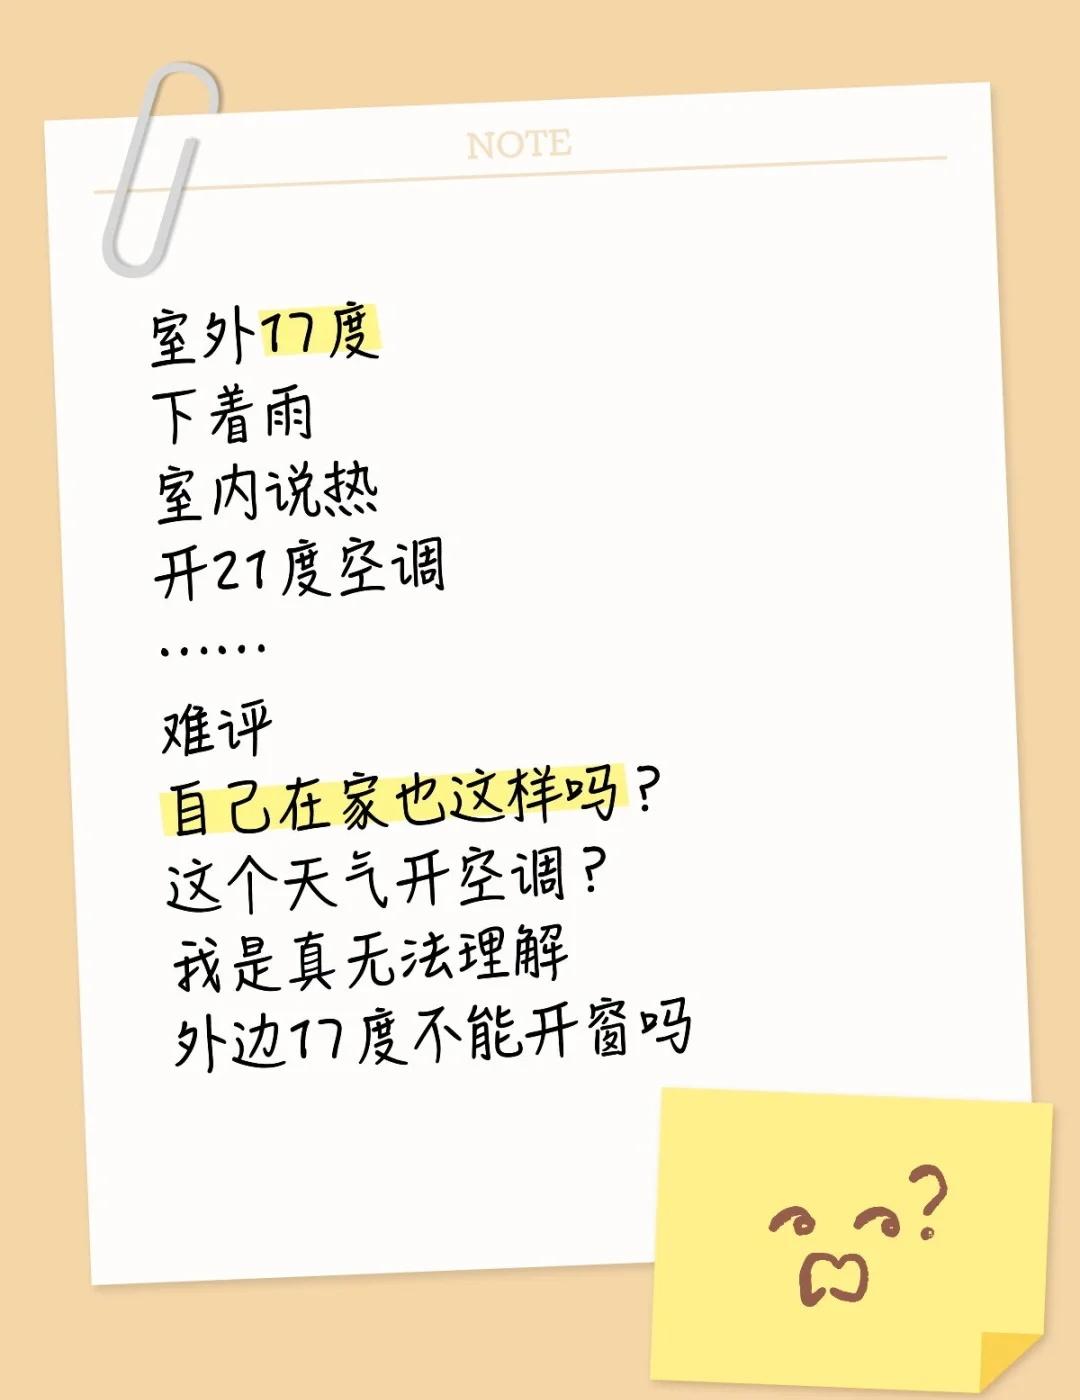 NOTE
室外17度
下着雨
室内说热
开21度空调
……
难评
自己在家也这样吗？
这个天气开空调？
我是真无法理解
外边17度不能开窗吗
?